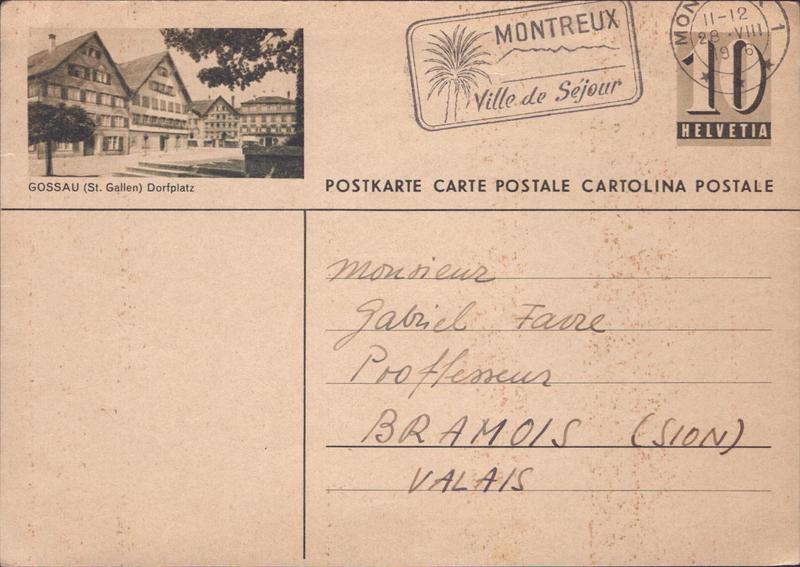 MONTREUX
Ville de Séjour
11-12
28.VIII
1
10
HELVETIA
GOSSAU (St. Gallen) Dorfplatz
POSTKARTE CARTE POSTALE CARTOLINA POSTALE
Monsieur
Gabriel Favre
Prooflesseur
BRAMOIS (SION)
VALAIS